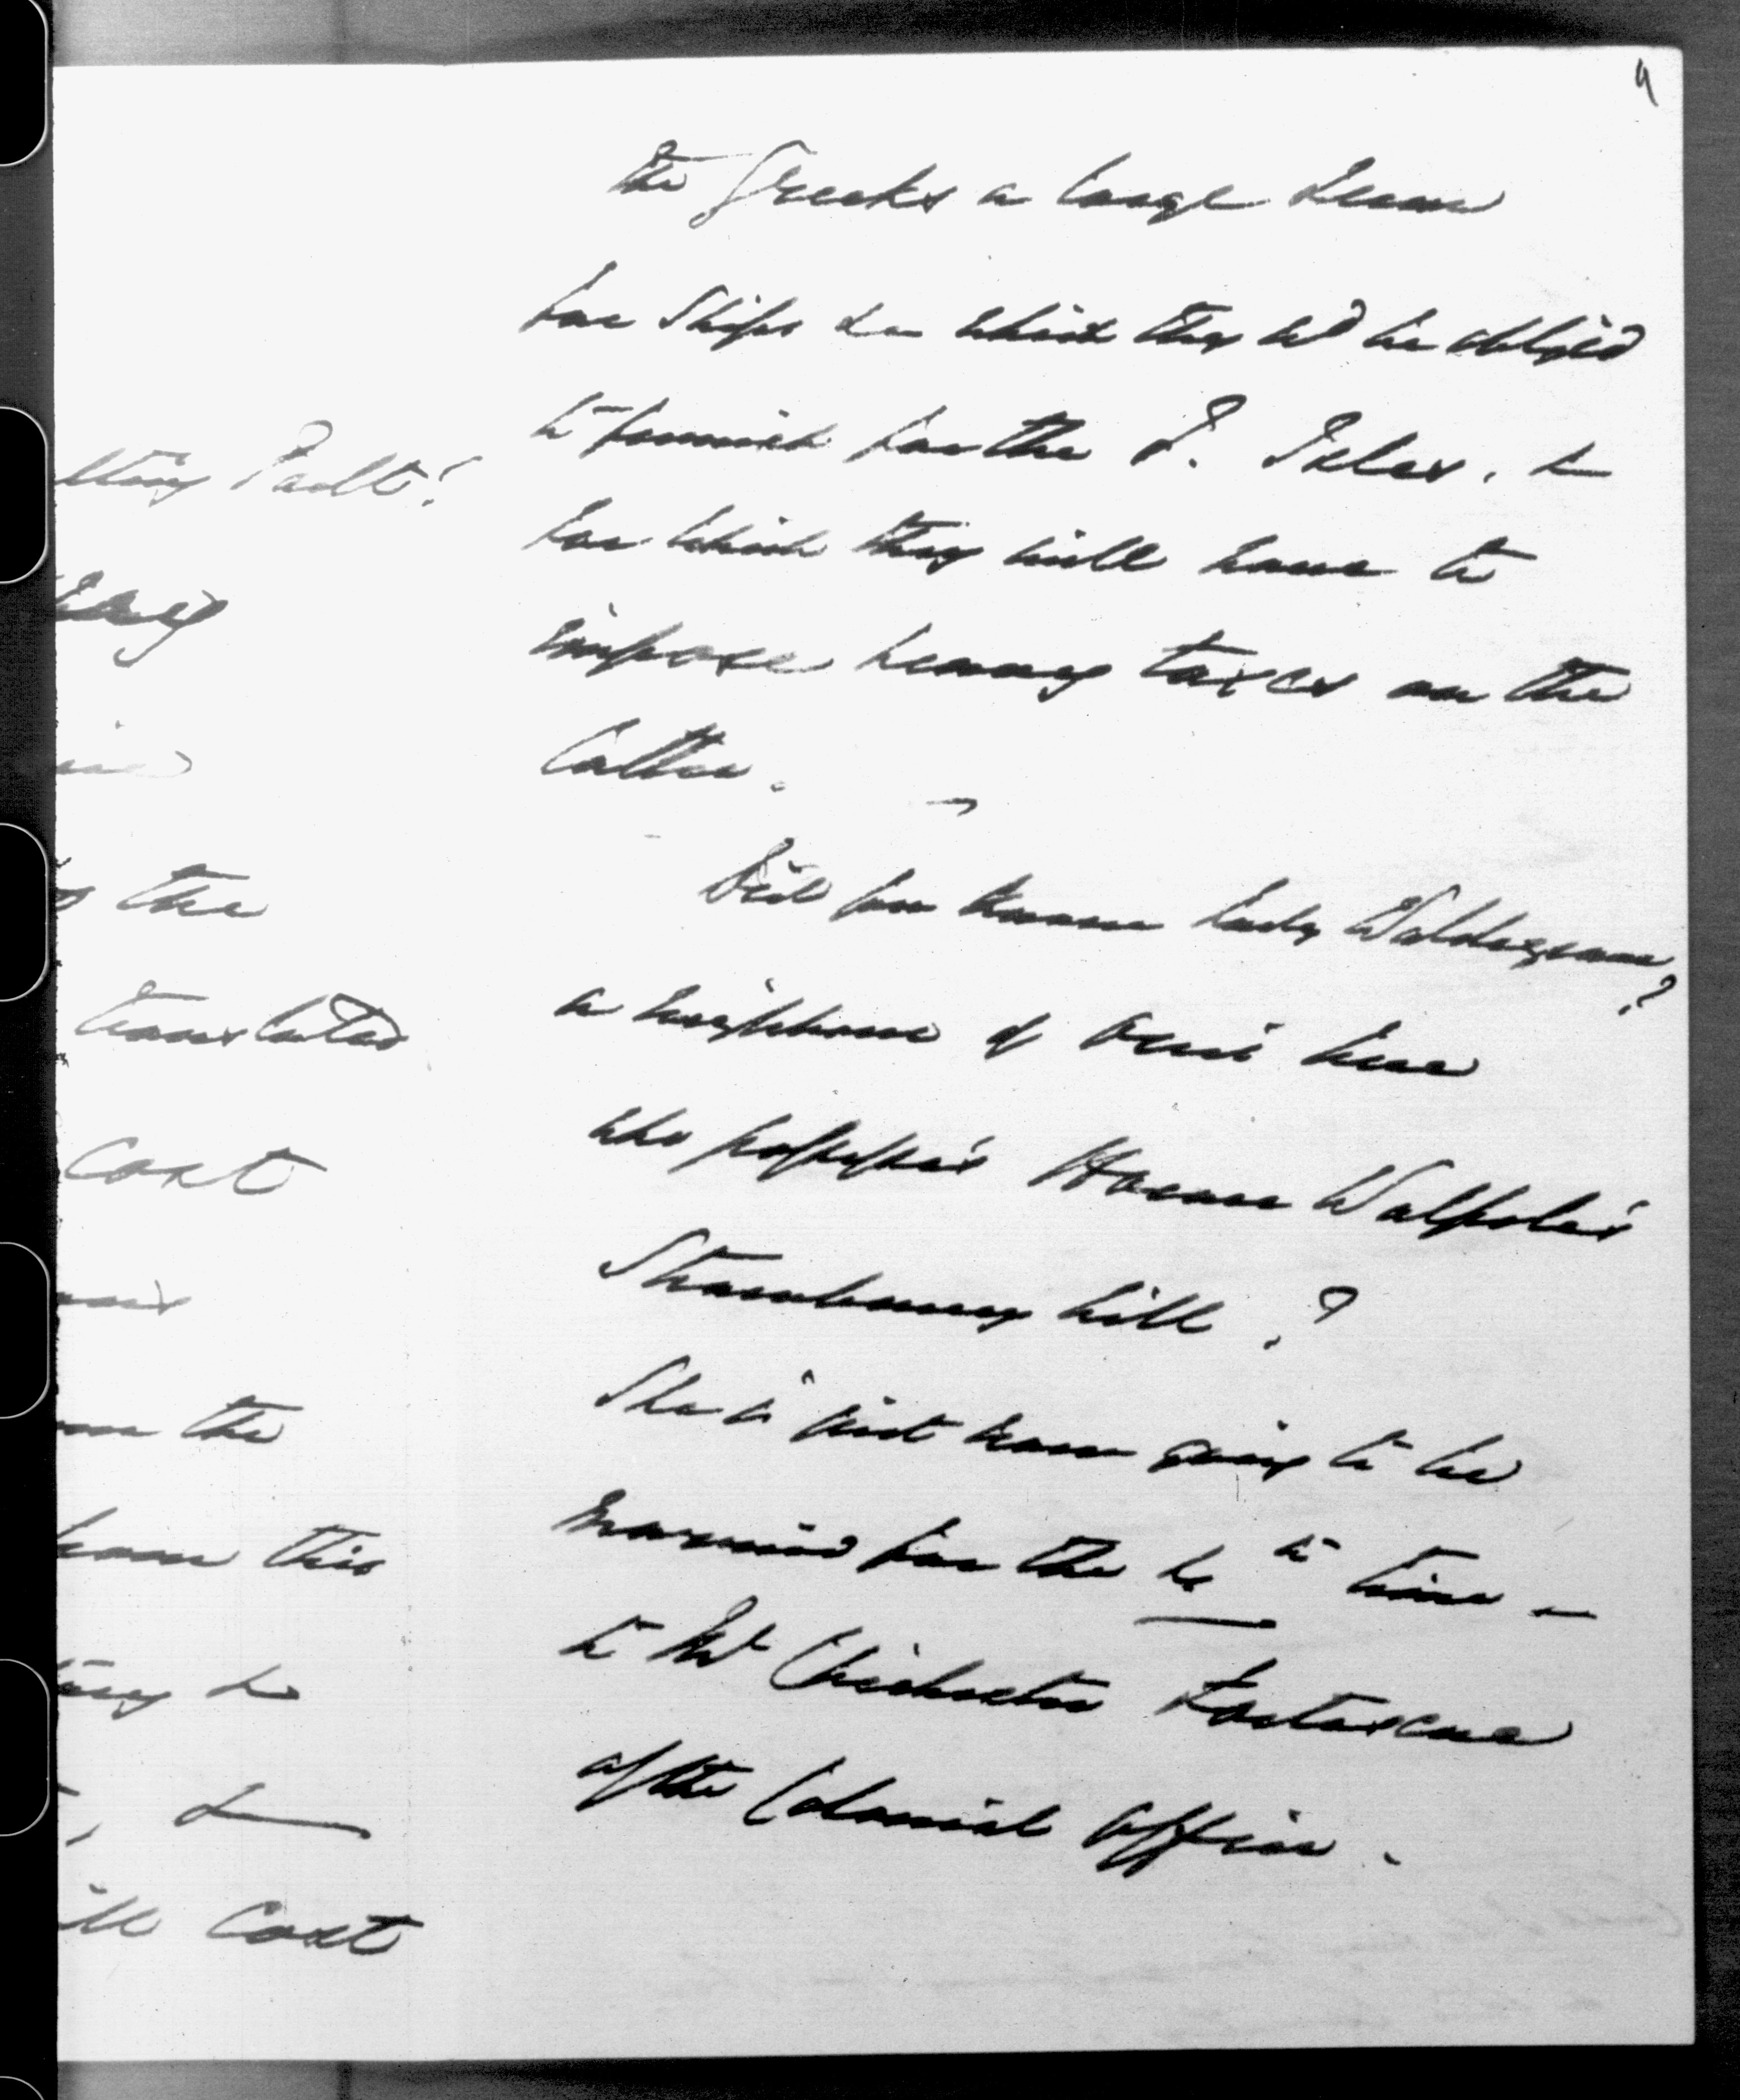 9
the Greeks a large sum
for Ships &c which they wd be obliged
to furnish for the I. Isles, &
for which they will have to
impose heavy taxes on the
latter.
Did you know Lady Waldegrave,?
a neighbour of ours here
who possesses Horace Walpole's
Strawberry hill?
She is just now going to be
married for the 4th time –
to Mr Chichester Fortescue
of the Colonial Office.
the
translated
Cost
the
this
&
, &
Cost